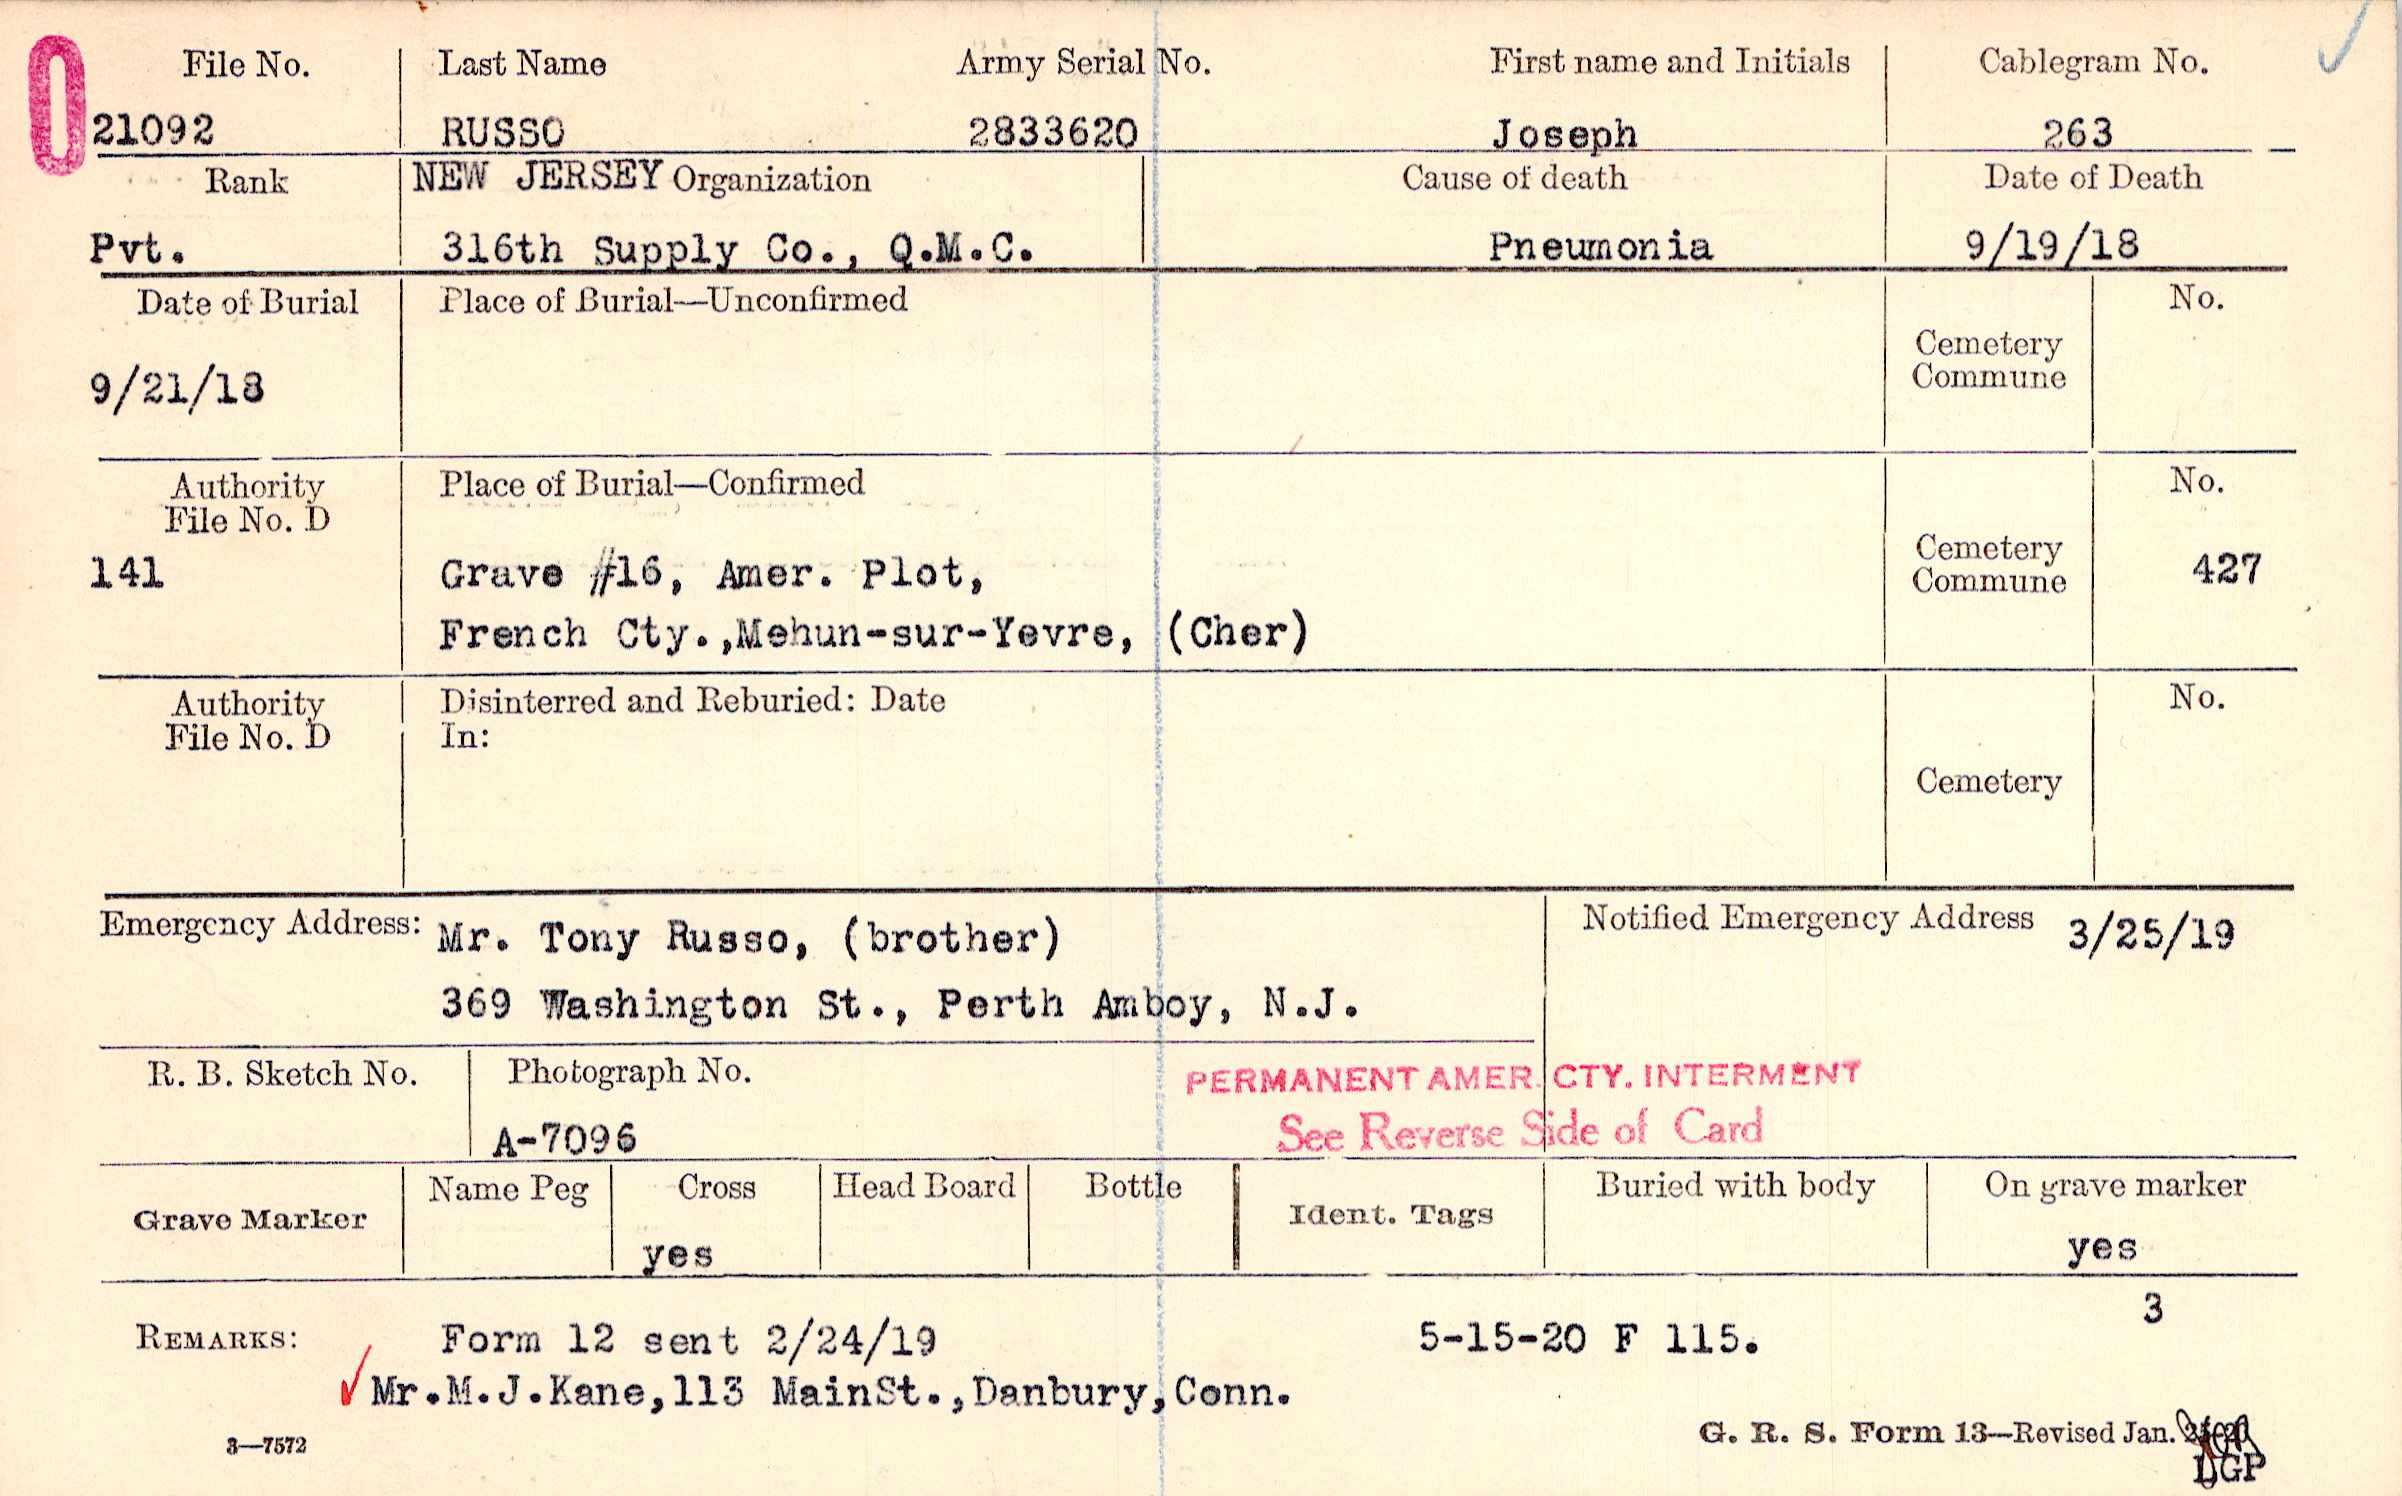 0
File No. Last Name Army Serial No. First name and Initials Cablegram No.
21092 RUSSO 2833620 Joseph 263
Rank NEW JERSEY Organization Cause of death Date of Death
Pvt. 316th Supply Co., Q.M.C. Pneumonia 9/19/18
Date of Burial Place of Burial—Unconfirmed No.
Cemetery
Commune
9/21/18
Authority Place of Burial—Confirmed No.
File No. D
Cemetery
141 Grave #16, Amer. Plot, Commune 427
French Cty.,Mehun-sur-Yevre, (Cher)
Authority Disinterred and Reburied: Date No.
File No. D In:
Cemetery
Emergency Address: Mr. Tony Russo, (brother) Notified Emergency Address 3/25/19
369 Washington St., Perth Amboy, N.J.
R. B. Sketch No. Photograph No. PERMANENT AMER. CTY. INTERMENT
A-7096 See Reverse Side of Card
Name Peg Cross Head Board Bottle Buried with body On grave marker
Grave Marker Ident. Tags
yes yes
3
REMARKS: Form 12 sent 2/24/19 5-15-20 F 115.
Mr.M.J.Kane,113 MainSt.,Danbury,Conn.
3—7572 G. R. S. Form 13—Revised Jan.
LGP